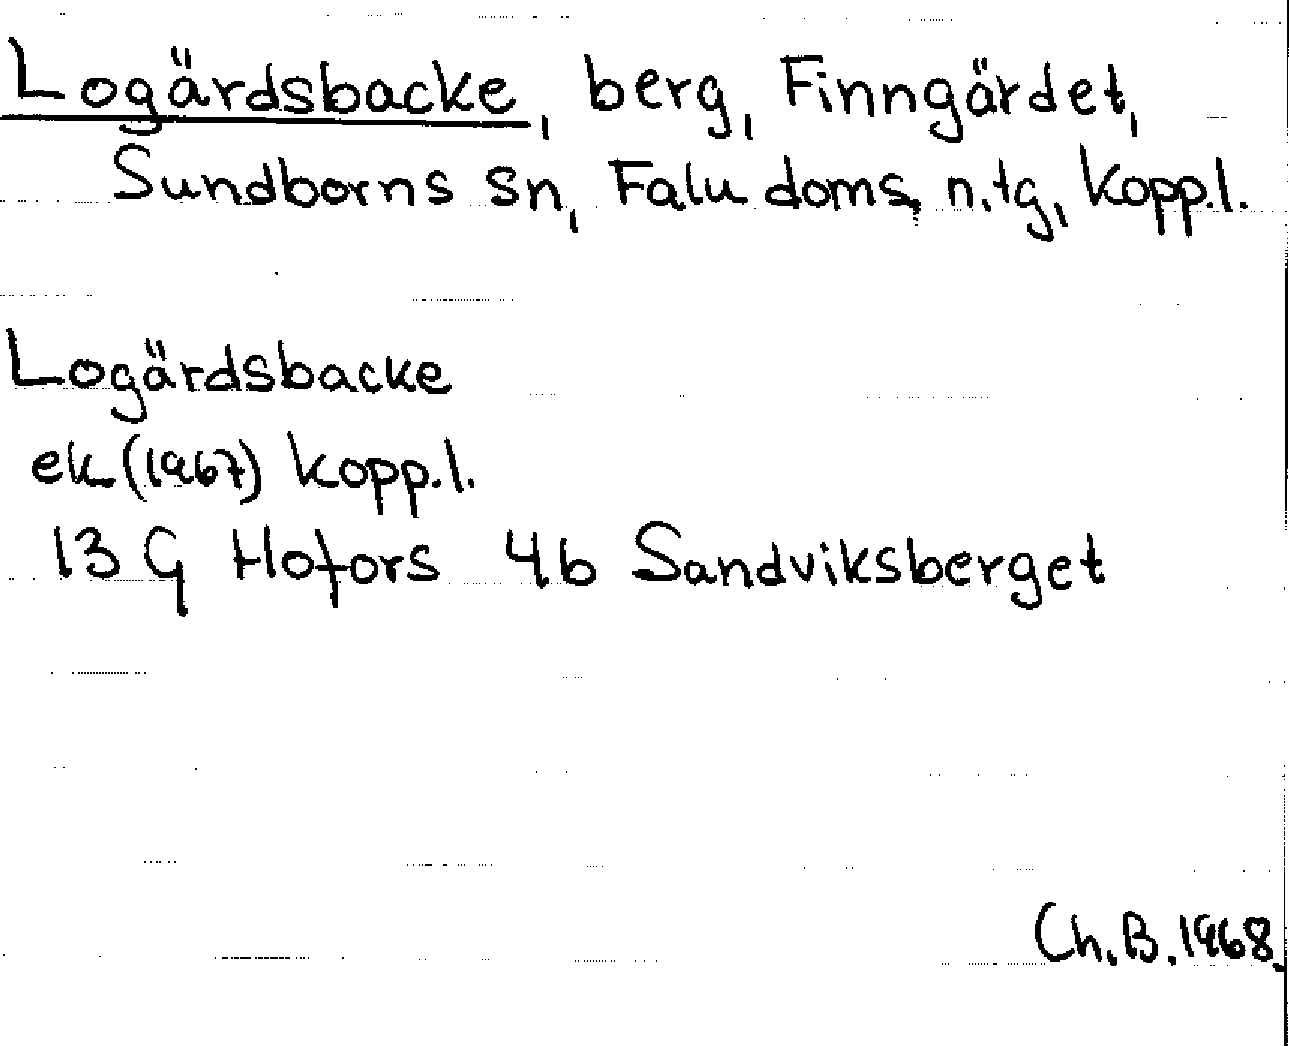 Logärdsbacke, berg, Finngärdet,
Sundborns sn, Falu doms, n.tg, Kopp.l.
Logärdsbacke
ek (1967) Kopp.l.
13 G Hofors 4b Sandviksberget
Ch.B. 1968.